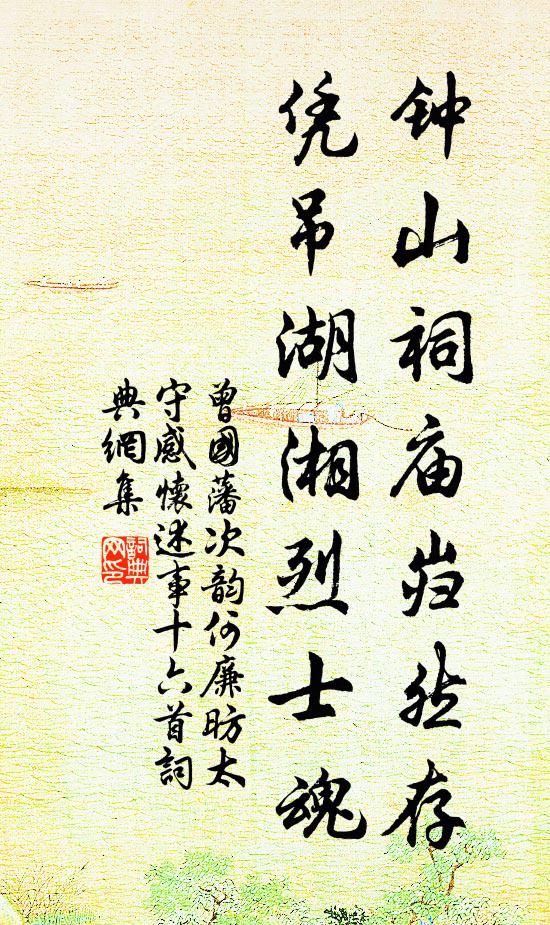 钟山祠庙岿然存
凭吊湖湘烈士魂
曾國藩次韵何廉昉太
守感懷述事十六首詞
典網集
詞典网印